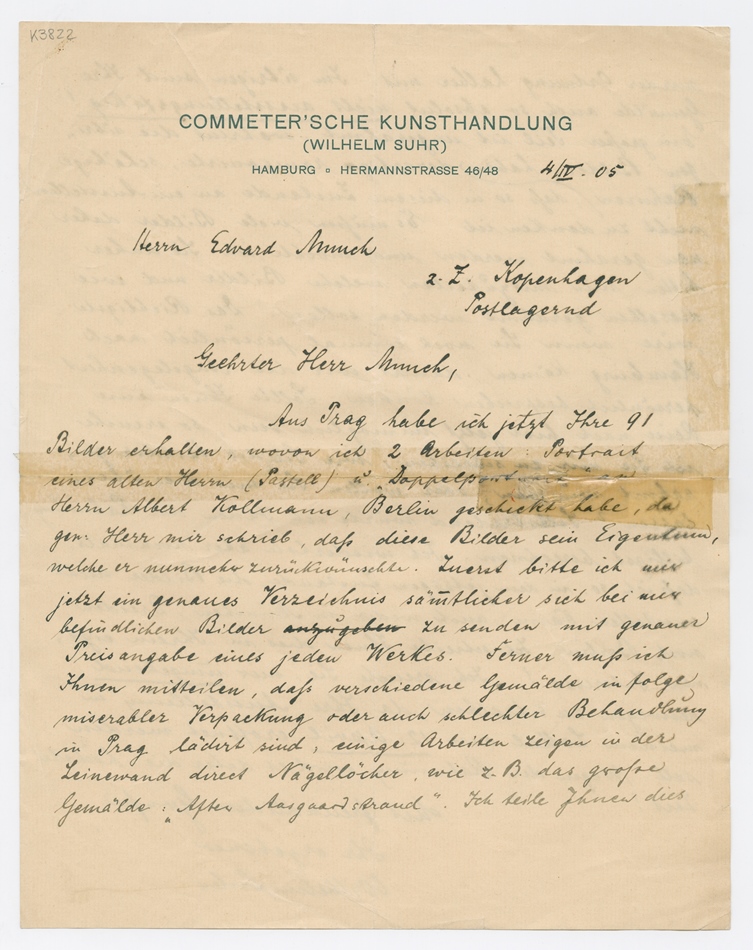 K3822
COMMETER'SCHE KUNSTHANDLUNG
(WILHELM SUHR)
HAMBURG o HERMANNSTRASSE 46/48 4/IV. 05
Herrn Edvard Munch
z. Z. Kopenhagen
Postlagernd
Geehrter Herr Munch,
Aus Prag habe ich jetzt Ihre 91
Bilder erhalten, wovon ich 2 Arbeiten: Portrait
eines alten Herrn (Pastell) u. "Doppelportrait" an
Herrn Albert Kollmann, Berlin geschickt habe, da
gen: Herr mir schrieb, daß diese Bilder sein Eigentum,
welche er nunmehr zurückwünschte. Zuerst bitte ich mir
jetzt ein genaues Verzeichnis sämtlicher sich bei mir
befindlichen Bilder anzugeben zu senden mit genauer
Preisangabe eines jeden Werkes. Ferner muß ich
Ihnen mitteilen, daß verschiedene Gemälde in folge
miserabler Verpackung oder auch schlechter Behandlung
in Prag lädirt sind, einige Arbeiten zeigen in der
Leinewand direct Nägellöcher, wie z. B. das große
Gemälde: "After Aasgaardstrand". Ich teile Ihnen dies